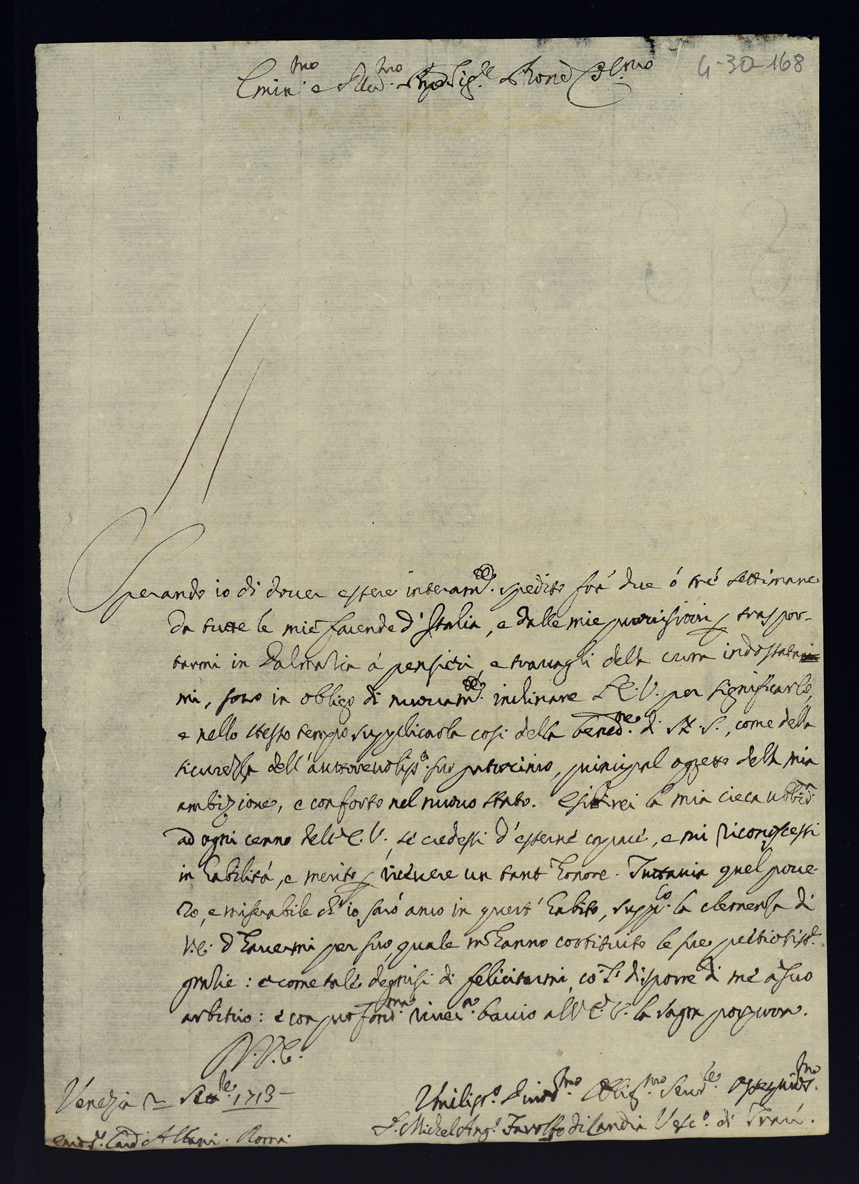 4-30-168
Emin.mo e Rev.mo Sig.re Prone Col.mo
Sperando io di dover essere interam.te spedito frà due ò trè settimane
da tutte le mie facende d'Italia, e dalle mie provisioni p traspor-
tarmi in Dalmazia à pensieri, e travagli della cura
mi, sono in obligo di nuovam.te inclinare l'E.V. per significarle,
e nello stesso tempo supplicarla così della bened.ne di S.S., come della
sicurezza dell'autorevoliss.o suo patrocinio, principal oggetto della mia
ambizione, e conforto nel nuovo stato. Esibirei la mia cieca ubbid.za
ad ogni cenno dell'E.V. se credessi d'esserne capace, e mi riconoscessi
in habilità, e merito p ricevere un tant'honore. Tuttavia quel pove-
ro, e miserabile ch'io sarò anco in quest'habito, supp.co la clemenza di
V.E. d'havermi per suo, quale m'hanno costituito le sue
grazie: e come tale degnisi di felicitarmi, co'l disporre di mè à suo
arbitrio: e con profond.ma river.za baccio all'E.V. la sagra porpora.
D.V.E.
Venezia Sett.e 1713
Umiliss.o Divot.mo Oblig.mo Serv.re Ossequios.mo
F. Michel Ang.o Farolfo di Candia Vesc.o di Traù.
Em.o S.r Card. Albani. Roma